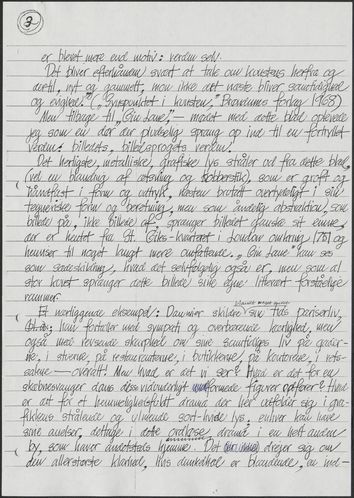 3
er blevet mere end motiv: verden selv.
Det bliver efterhånden svært at tale om kunstens herfra og
dertil, nyt og gammelt, mon ikke det næste bliver samtidighed
og evighed." ("Synspunktet i kunsten", Brøndums forlag 1968)
Men tilbage til "Gin Lane", – mødet med dette blad oplevede
jeg som en dør der pludselig sprang op ind til en fortryllet
verden: billedets, billedsprogets verden.
Det herligste, metalliske, grafiske lys stråler ud fra dette blad
(vel en blanding af ætsning og kobberstik), som er groft og
håndfast i form og udtryk, næsten brutalt overtydeligt i sin
tegneriske form og beretning, men som åndelig abstraktion, som
billede på, ikke billede af, sprænger billedet ganske sit emne,
der er hentet fra St. Giles-kvarteret i London omkring 1751 og
henviser til noget langt mere omfattende. "Gin Lane" kan ses
som sædeskildring, hvad det selvfølgelig også er, men som al
stor kunst sprænger dette billede sine egne litterært forståelige
rammer.
Et nærliggende eksempel: Daumier skildrer sin tids pariserliv,
han fortæller med sympati og overbærende kærlighed, men
også med hvæssende skarphed om sine samtidiges liv på gader-
ne, i stuerne, på restauranterne, i butikkerne, på kontorene, i rets-
salene – overalt! Men hvad er det vi ser? Hvad er det for en
skæbnesvanger dans disse vidunderligt formede figurer opfører? Hvad
er det for et hemmelighedsfuldt drama der her udfolder sig i gra-
fikkens strålende og ulmende sort-hvide lys; enhver kan have
sine anelser, deltage i dette ordløse drama i en helt anden
by, som haver andetsteds hjemme. Det drejer sig om
den allerstørste klarhed, hvis dunkelhed er blændende, en ind-